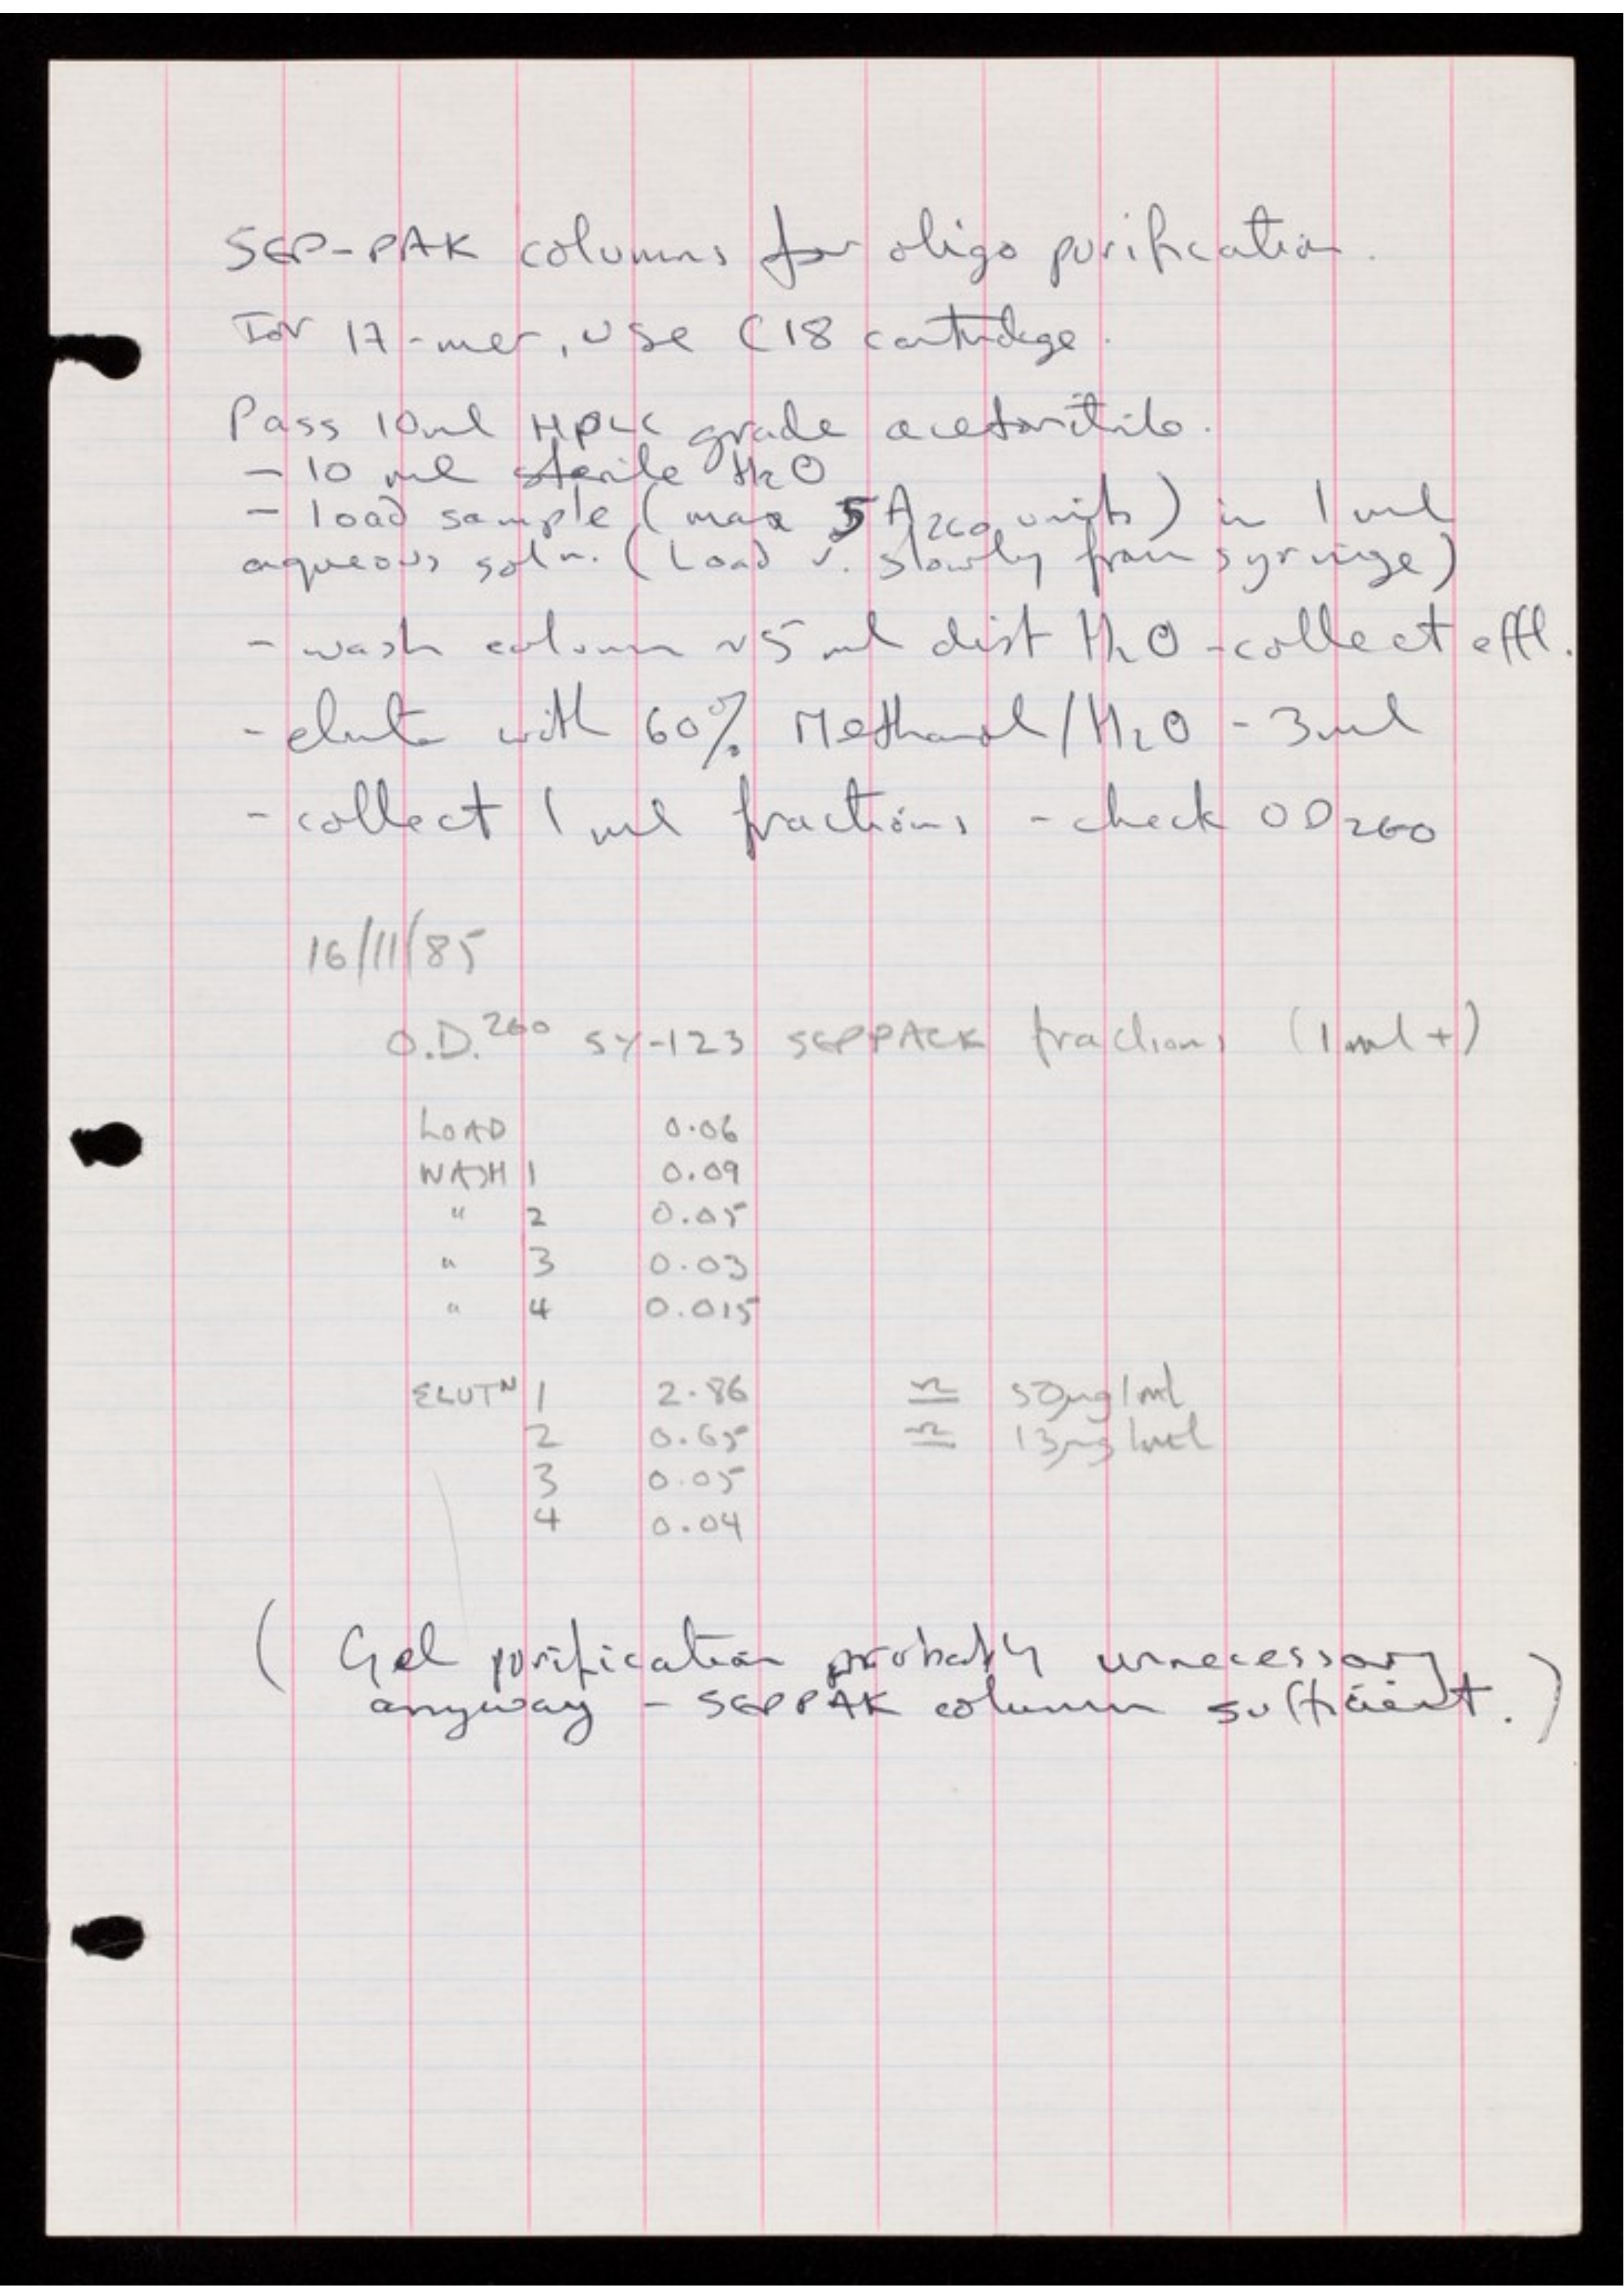 SEP-PAK columns for oligo purification.
For 17-mer, use C18 cartridge.
Pass 10ml HPLC grade acetonitrile.
- 10 ml sterile H2O
- load sample (max 5 A260 units) in 1 ml
aqueous soln. (Load v. slowly from syringe)
- wash column ~5 ml dist H2O - collect effl.
- elute with 60% Methanol/H2O - 3ml
- collect 1 ml fractions - check OD260
16/11/85
O.D.260 SY-123 SEPPACK fractions (1ml +)
LOAD 0.06
WASH 1 0.09
" 2 0.05
" 3 0.03
" 4 0.015
ELUTN 1 2.86 ≏ 50µg/ml
2 0.65 ≏ 13µg/ml
3 0.05
4 0.04
( Gel purification probably unnecessary
anyway - SEPPAK column sufficient. )